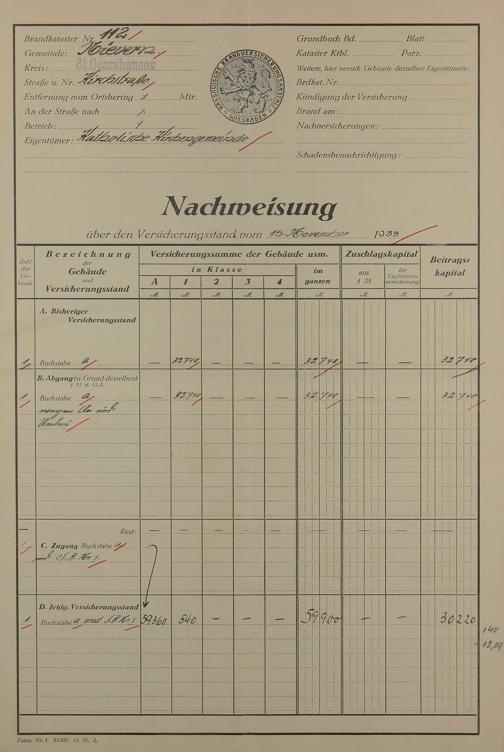 Brandkataster Nr. 112
Gemeinde: Nievern
Kreis: St. Goarshausen
Straße u. Nr. Kirchstraße
Entfernung vom Ortsbering / Mtr.
An der Straße nach /
Betrieb: /
Eigentümer: Katholische Kirchengemeinde
NASSAUISCHE BRANDVERSICHERUNGSANSTALT WIESBADEN
Grundbuch Bd. Blatt
Kataster Ktbl. Parz.
Weitere, hier versich. Gebäude desselben Eigentümers:
Brdkat. Nr.
Kündigung der Versicherung
Brand am:
Nachversicherungen:
Schadensbenachrichtigung:
Nachweisung
über den Versicherungsstand vom 15. November 1933
Zahl der Gebäude
Bezeichnung der Gebäude und Versicherungsstand
Versicherungssumme der Gebäude usw.
in Klasse
A 1 2 3 4
im ganzen
Zuschlagskapital
aus § 35
für Explosionsversicherung
Beitragskapital
A. Bisheriger
Versicherungsstand
1 Buchstabe a — 32740 — — — 32740 — — 32740
B. Abgang (u. Grund desselben)
§ 31 d. G.A.
1 Buchstabe a — 32740 — — — 32740 — — 32740
wegen An und
Umbau
— Rest: — — — — — — — — —
C. Zugang Buchstabe a
und S.B. Nr. 1
D. Jetzig. Versicherungsstand
1 Buchstabe a und S.B. Nr. 1 59360 540 — — — 59900 — — 30220
Form. Nr. 1. 50000. 11. 31. L.